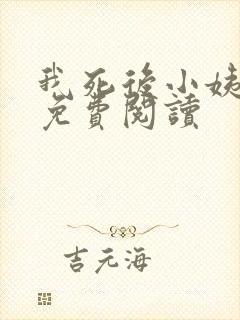 我死後小姨
免費閱讀
吉元海